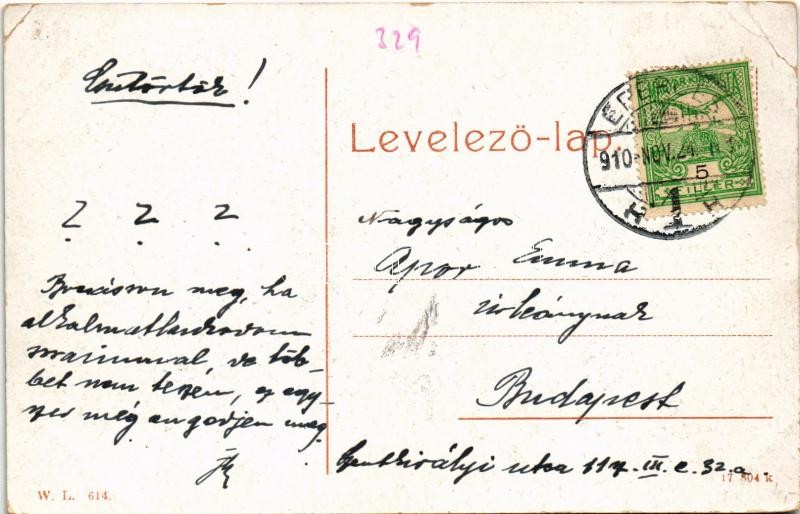 329
Csütörtök!
? ? ?
Bocsásson meg, ha
alkalmatlankodom
soraimmal de töb-
bet nem teszem, ez egy-
szer még engedjen meg.
Levelező-lap.
910 NOV. 24
MAGYAR KIR
5
FILLÉR
Nagyságos
Apor Emma
úrleánynak
Budapest
Szentkirályi utca 117. III. e. 32. a.
W. L. 614.
17 804 k